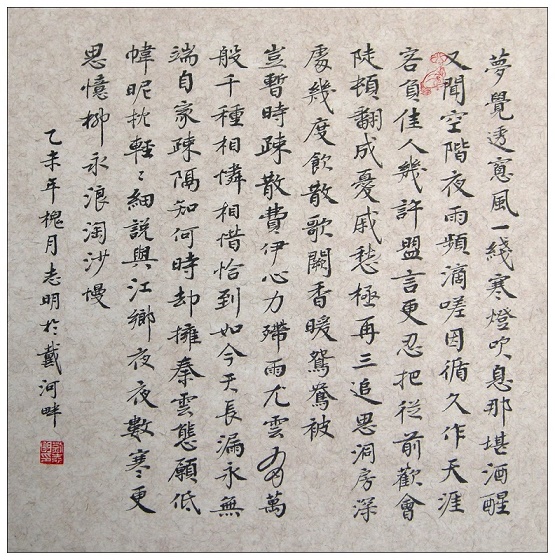 夢覺透窓風一綫寒燈吹息那堪酒醒
又聞空階夜雨頻滴嗟因循久作天涯
客負佳人幾許盟言更忍把從前歡會
陡頓翻成憂戚愁極再三追思洞房深
處幾度飲散歌闋香暖鴛鴦被
豈暫時疎散費伊心力殢雨尤雲有萬
般千種相憐相惜恰到如今天長漏永無
端自家疎隔知何時却擁秦雲態願低
幃昵枕輕〻細說與江鄉夜夜數寒更
思憶柳永浪淘沙慢
乙未年槐月志明於戴河畔